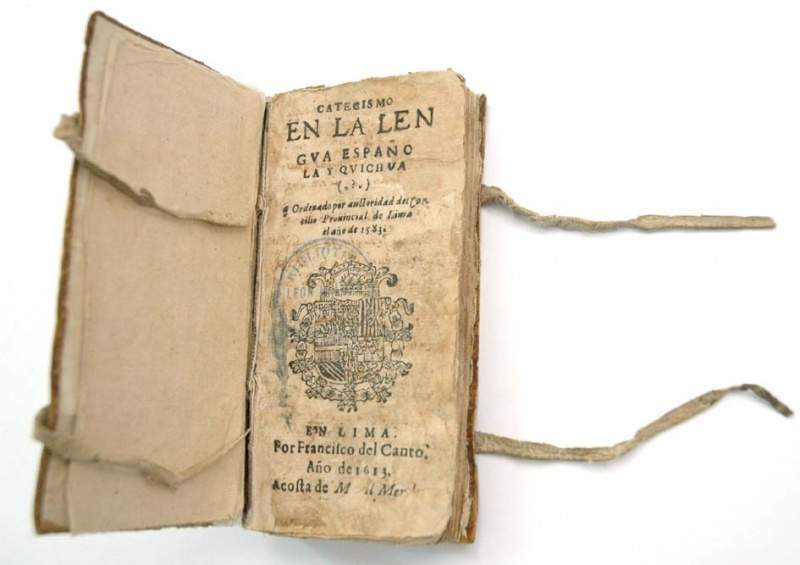 CATECISMO
EN LA LEN
GVA ESPAÑO
LA Y QVICHVA
(.?.)
¶ Ordenado por auctoridad del Con
cilio Prouincial de Lima
el año de 1583.
LEON
EN LIMA.
Por Francisco del Canto,
Año de 1613.
Acosta de